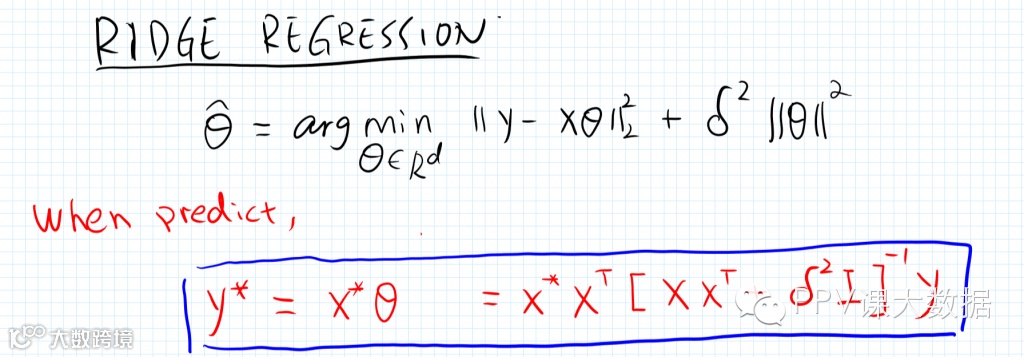 RIDGE REGRESSION
θ̂ = arg min ‖y - xθ‖₂² + δ² ‖θ‖²
θ∈ℝᵈ
when predict,
y* = x*θ = x* xᵀ [ x xᵀ - δ² I ]⁻¹ y
PPV课大数据
大数跨境